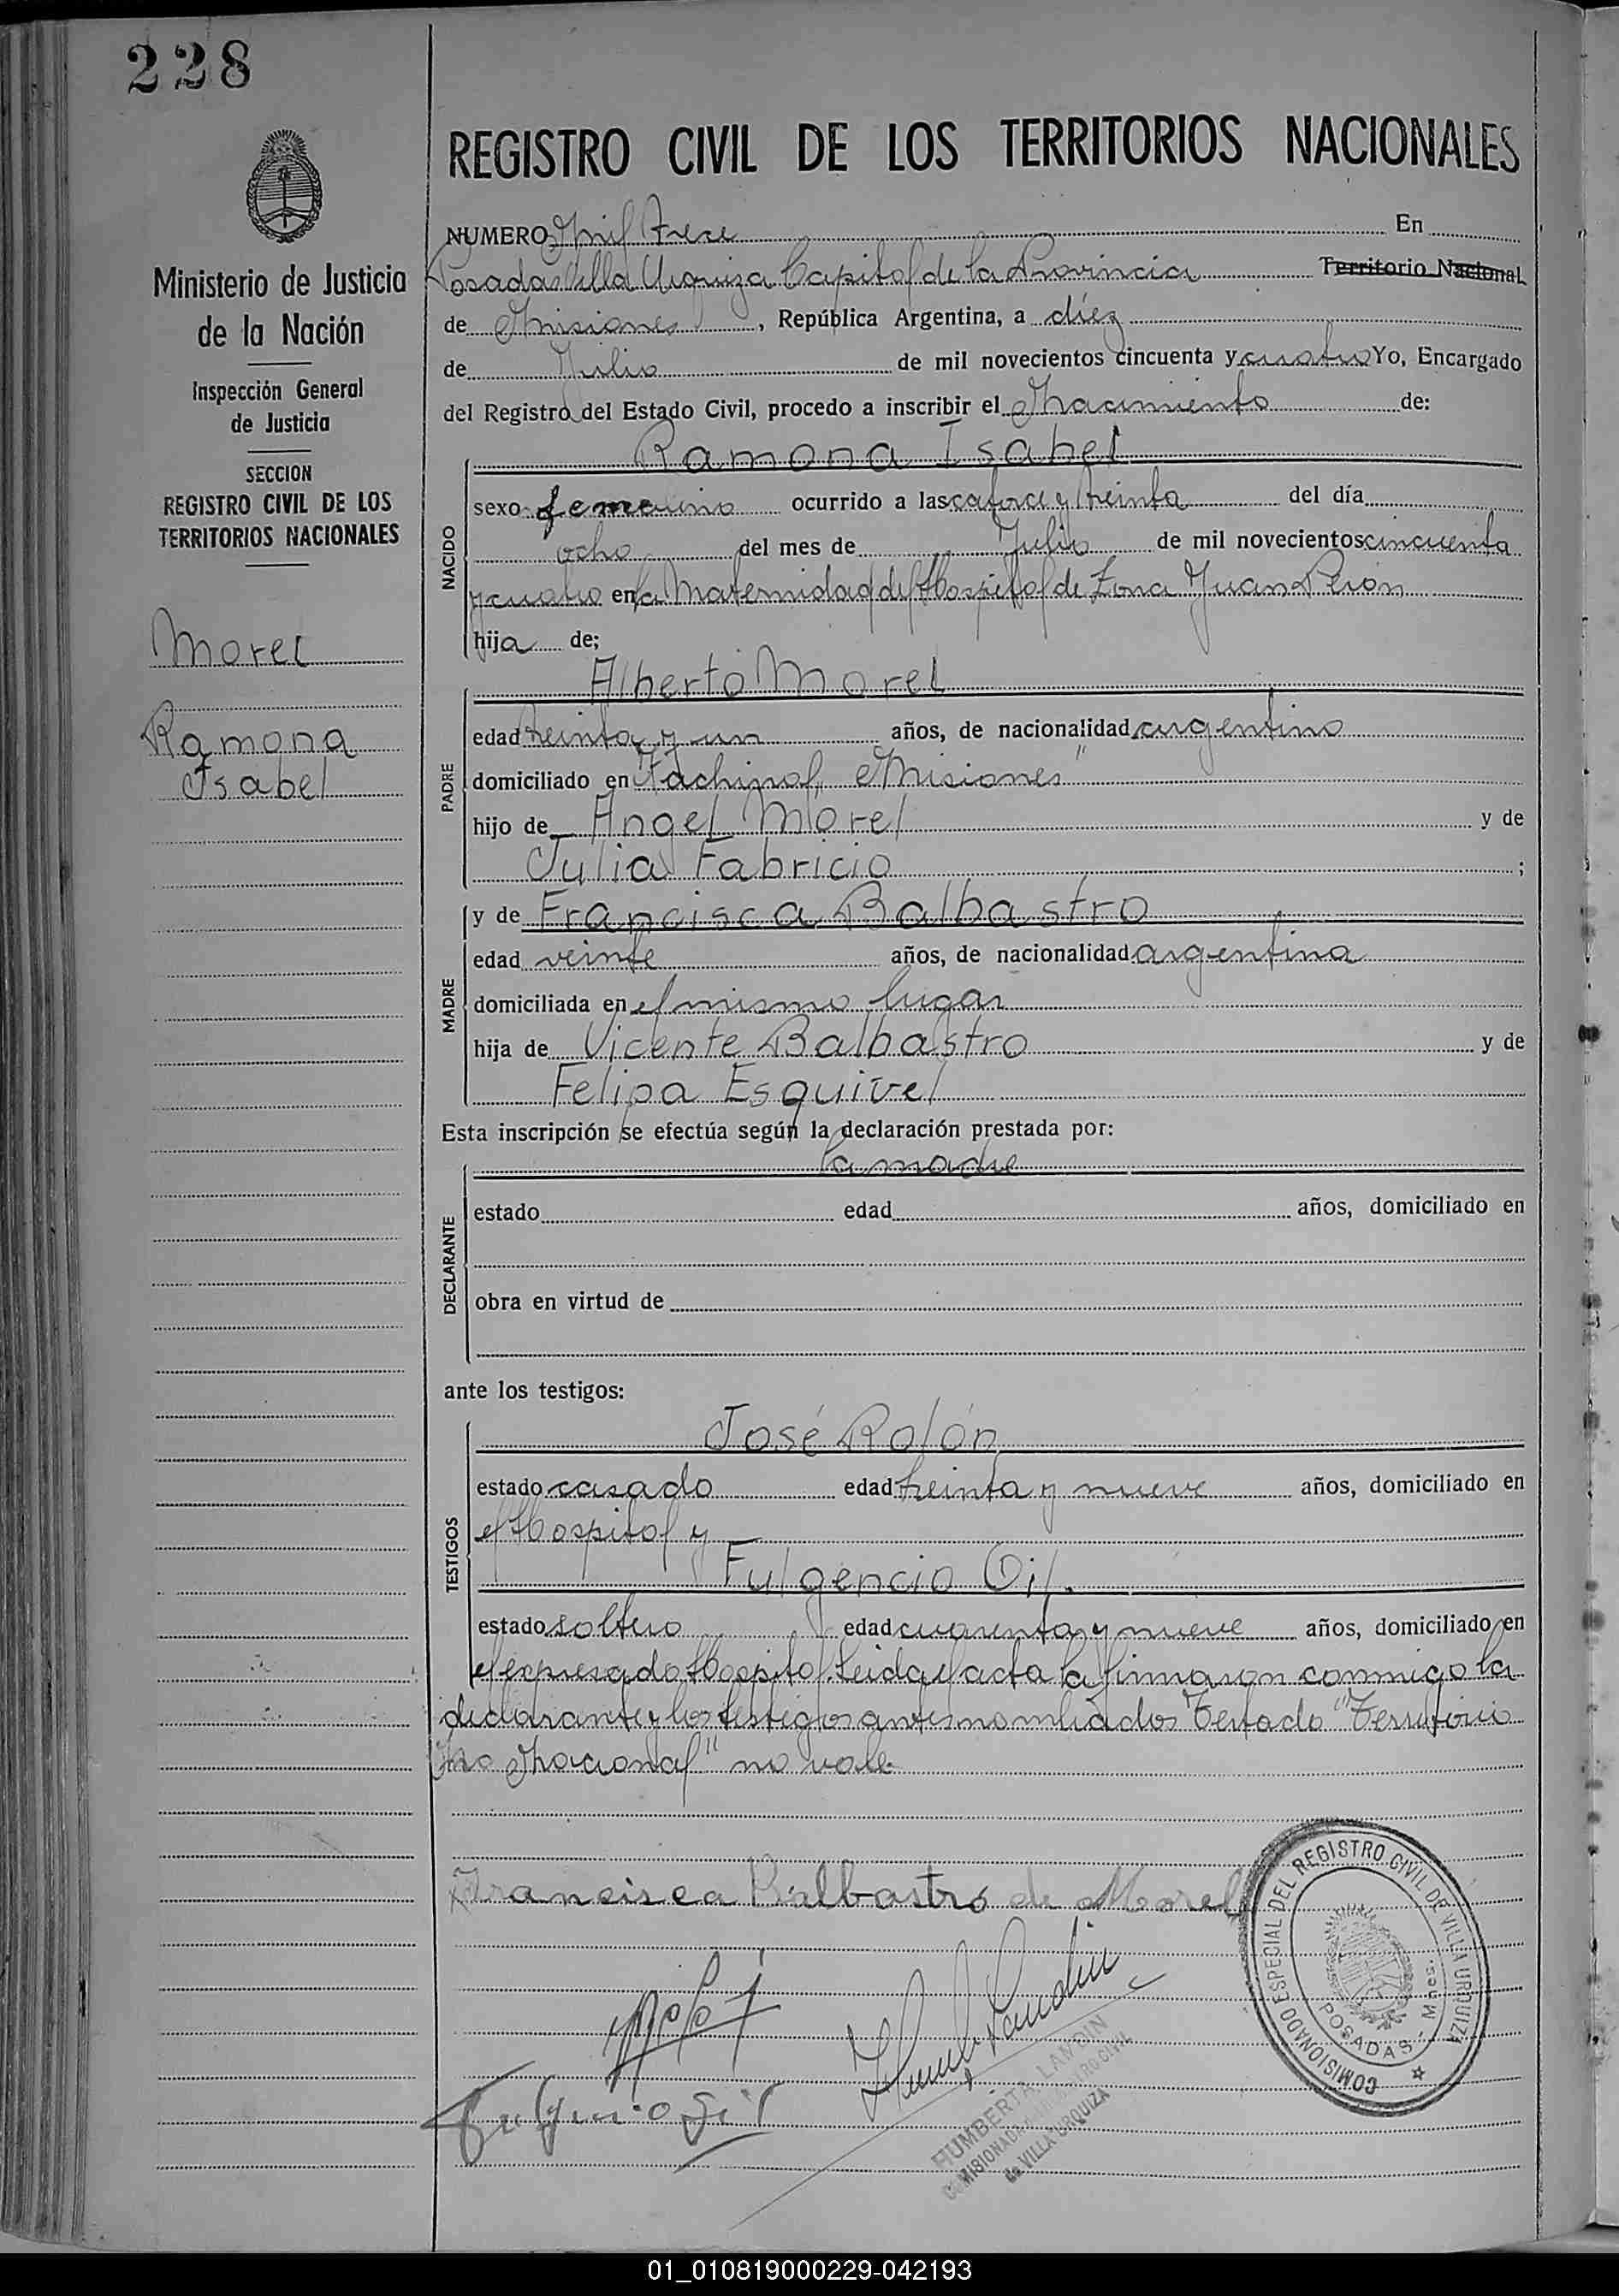 228
REGISTRO CIVIL DE LOS TERRITORIOS NACIONALES
Ministerio de Justicia
de la Nación
Inspección General
de Justicia
SECCION
REGISTRO CIVIL DE LOS
TERRITORIOS NACIONALES
Morel
Ramona
Isabel
NUMERO Mil Trece En
Posadas Villa Urquiza Capital de la Provincia Territorio Nacional
de Misiones, República Argentina, a diez
de Julio de mil novecientos cincuenta y cuatro Yo, Encargado
del Registro del Estado Civil, procedo a inscribir el Nacimiento de:
Ramona Isabel
NACIDO
sexo femenino ocurrido a las catorce y treinta del día
ocho del mes de Julio de mil novecientos cincuenta
y cuatro en la Maternidad del Hospital de Zona Juan Perón
hija de;
Alberto Morel
PADRE
edad treinta y un años, de nacionalidad argentino
domiciliado en "Fachinal, Misiones"
hijo de Angel Morel y de
Julia Fabricio ;
y de Francisca Balbastro
MADRE
edad veinte años, de nacionalidad argentina
domiciliada en el mismo lugar
hija de Vicente Balbastro y de
Felipa Esquivel
Esta inscripción se efectúa según la declaración prestada por:
la madre
DECLARANTE
estado edad años, domiciliado en
obra en virtud de
ante los testigos:
José Rolón
TESTIGOS
estado casado edad treinta y nueve años, domiciliado en
el Hospital y
Fulgencio Gil.
estado soltero edad cuarenta y nueve años, domiciliado en
el expresado Hospital. Leida el acta la firmaron conmigo la
declarante y los testigos antes nombrados Testado "Territorio
Nacional" no vale
Francisca Balbastro de Morel
Fulgencio Gil
HUMBERTA LANDIN
COMISIONADA REGISTRO CIVIL
de VILLA URQUIZA
COMISIONADO ESPECIAL DEL REGISTRO CIVIL DE VILLA URQUIZA
POSADAS - Mnes.
01_010819000229-042193